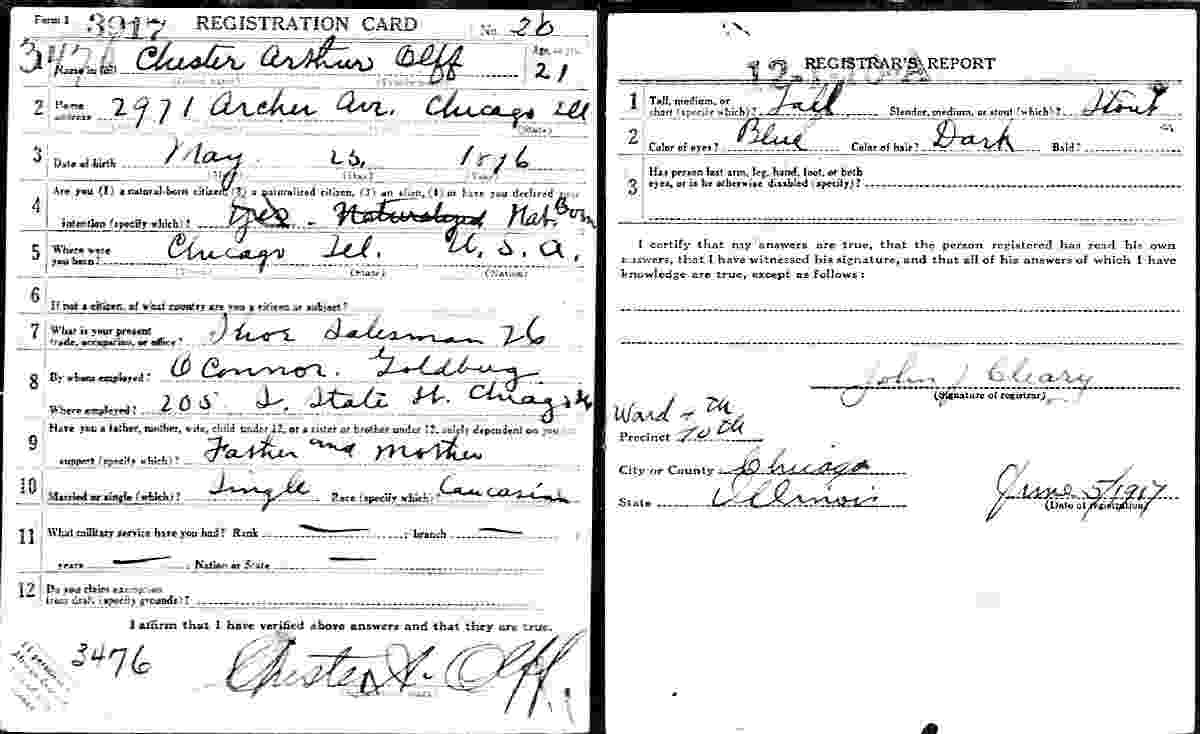 Form 1 3917 REGISTRATION CARD No. 26
3476 Name in full Chester Arthur Olff Age, in yrs. 21
(Given name) (Family name)
2 Home address 2971 Archer Avr. Chicago Ill
(State)
3 Date of birth May 23, 1896
(Month) (Day) (Year)
Are you (1) a natural-born citizen, (2) a naturalized citizen, (3) an alien, (4) or have you declared your
4 intention (specify which)? Yes - Naturalized Nat. Born
5 Where were you born? Chicago Ill. U. S. A.
(Town) (State) (Nation)
6 If not a citizen, of what country are you a citizen or subject?
7 What is your present trade, occupation, or office? Shoe Salesman 26
8 By whom employed? O Connor. Goldberg
Where employed? 205 S. State St. Chicago
Have you a father, mother, wife, child under 12, or a sister or brother under 12, solely dependent on you for
9 support (specify which)? Father and Mother
10 Married or single (which)? Single Race (specify which)? Caucasian
11 What military service have you had? Rank — ; branch —
years — ; Nation or State —
12 Do you claim exemption from draft (specify grounds)?
I affirm that I have verified above answers and that they are true.
3476
Chester A. Olff
REGISTRAR'S REPORT
1 Tall, medium, or short (specify which)? Tall Slender, medium, or stout (which)? Stout
2 Color of eyes? Blue Color of hair? Dark Bald?
3 Has person lost arm, leg, hand, foot, or both eyes, or is he otherwise disabled (specify)?
I certify that my answers are true, that the person registered has read his own
answers, that I have witnessed his signature, and that all of his answers of which I have
knowledge are true, except as follows:
John J Cleary
(Signature of registrar)
Ward - th
Precinct 70th
City or County Chicago
State Illinois
June 5/1917
(Date of registration)